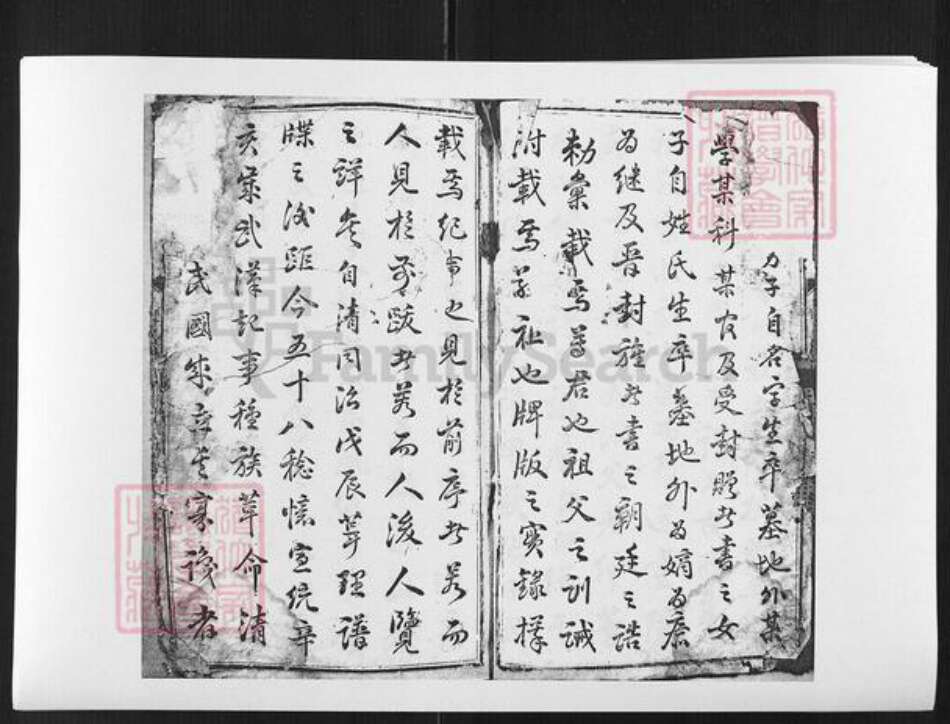 男子自名字生卒墓地外某
學某科某官及受封贈者書之女
子自姓氏生卒墓地外為嫡為庶
為继及晉封旌者書之朝廷之誥
勅彙載焉尊君也祖父之訓誡
附載焉 祉也牌版之实録擇
載焉纪 也見於前序者若而
人見於 跋者若而人後人覽
之詳矣自清同治戊辰葺理譜
牒之後距今五十八稔憶宣統辛
亥歲武漢記事種族革命清
民國 者
FamilySearch